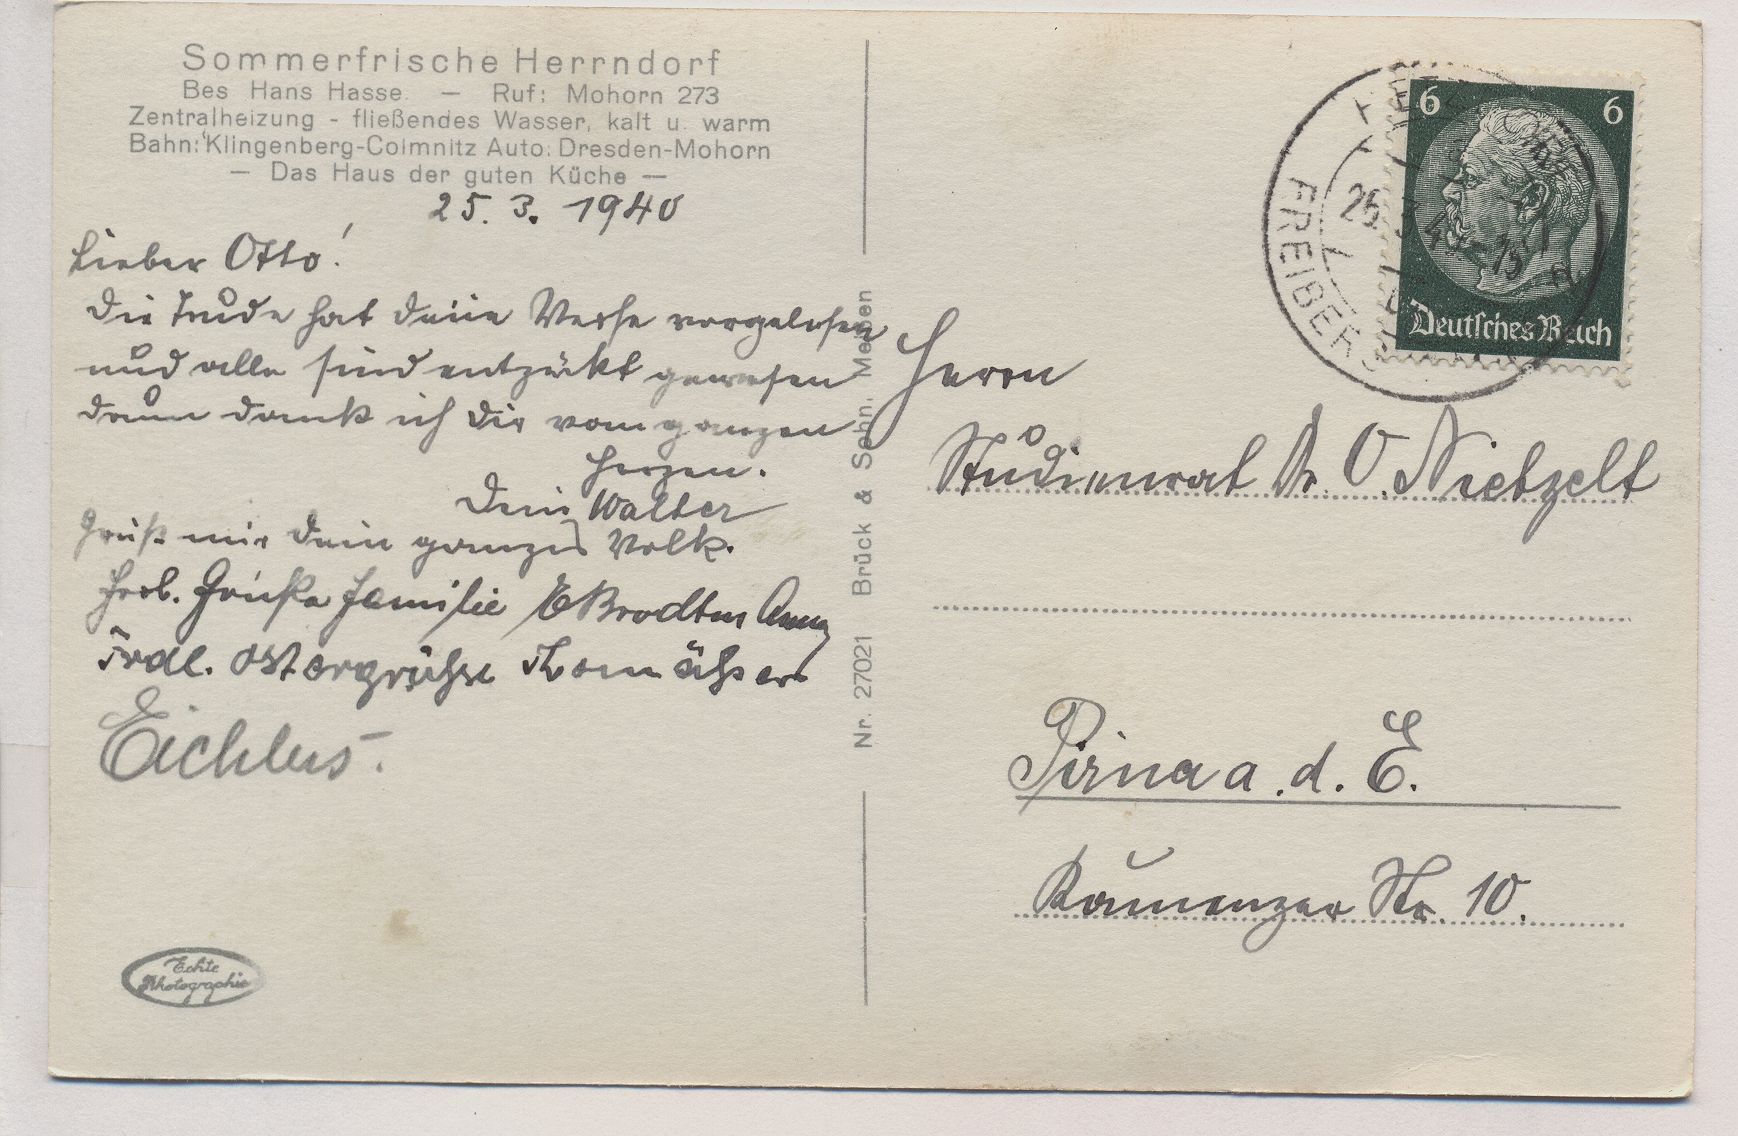 Sommerfrische Herrndorf
Bes Hans Hasse. — Ruf: Mohorn 273
Zentralheizung - fließendes Wasser, kalt u. warm
Bahn: Klingenberg-Colmnitz Auto: Dresden-Mohorn
— Das Haus der guten Küche —
25. 3. 1940
Lieber Otto!
die Trude hat deine Verse vorgelesen
und alle sind entzückt gewesen
drum dank ich dir vom ganzen
Herzen.
Dein Walter
Grüß mir dein ganzes Volk.
Herzl. Grüße Familie
Frdl. Ostergrüße
Nr. 27021 Brück & Sohn, Meißen
6 6
Deutsches Reich
FREIBERG
Herrn
Studienrat Dr. O. Nietzelt
Pirna a. d. E.
Kamenzer Str. 10.
Echte
Photographie